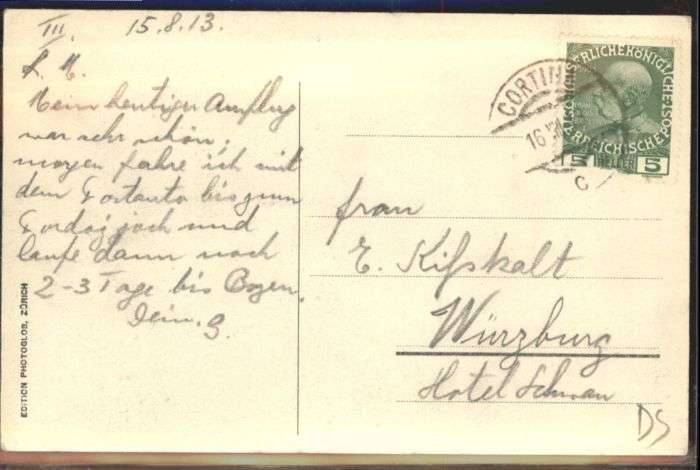 III. 15.8.13.
L. M.
Mein heutiger Ausflug
war sehr schön,
morgen fahre ich mit
dem Postauto bis zum
Pordoijoch und
laufe dann noch
2-3 Tage bis Bozen.
Dein
EDITION PHOTOGLOB, ZÜRICH
CORTINA
16
c
KAISERLICHE KÖNIGLICHE
ÖSTERREICHISCHE POST
5 HELLER 5
Frau
E. Kifskalt
Würzburg
Hotel Schwan
DS